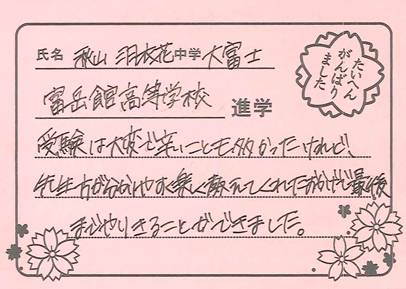 氏名 秋山 羽衣花 中学 大富士
富岳館高等学校 進学
たいへん
がんばり
ました
受験は大変で辛いことも多かったけれど、
先生方が分かりやすく楽しく教えてくれたおかげで最後
までやりきることができました。